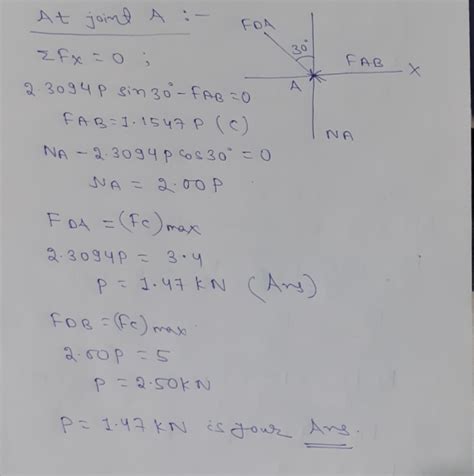 At joint A :-
FDA
30°
FAB
X
A
NA
ΣFx = 0 ;
2.3094P sin30° - FAB = 0
FAB = 1.1547 P (C)
NA - 2.3094P cos30° = 0
NA = 2.00P
FDA = (Fc)max
2.3094P = 3.4
P = 1.47 KN (Ans)
FDB = (Fc)max
2.00P = 5
P = 2.50KN
P = 1.47 KN is your Ans.